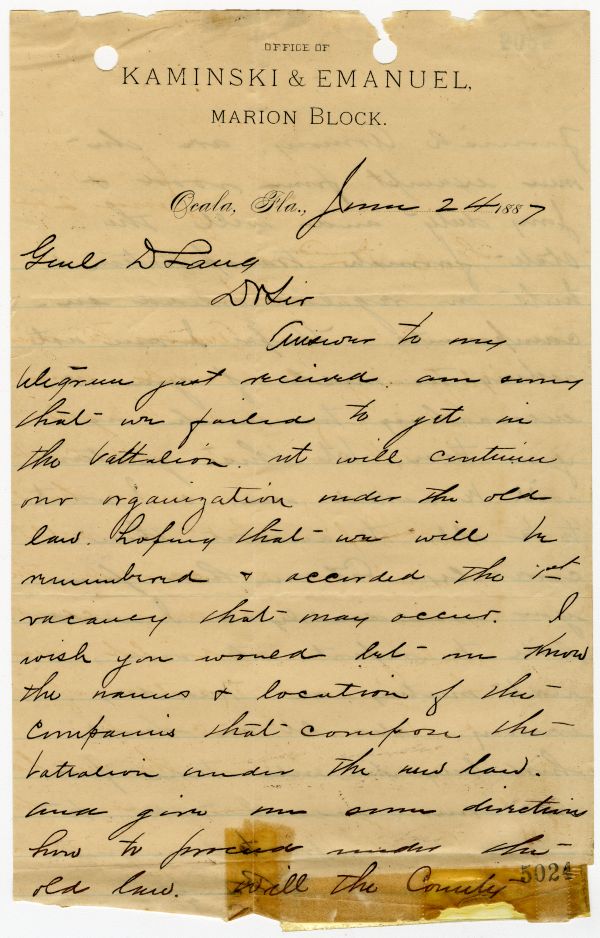 OFFICE OF
KAMINSKI & EMANUEL,
MARION BLOCK.
Ocala, Fla., June 24 1887
Genl D Lang
Dr Sir
Answer to my
telegram just received. am sorry
that we failed to get in
the battalion. will continue
our organization under the old
law. hoping that we will be
remembered & accorded the 1st
vacancy that may occur. I
wish you would let me know
the names & location of the
Companies that compose the
battalion under the new law.
and give me some direction
how to proceed under the
old law. Will the County
5024